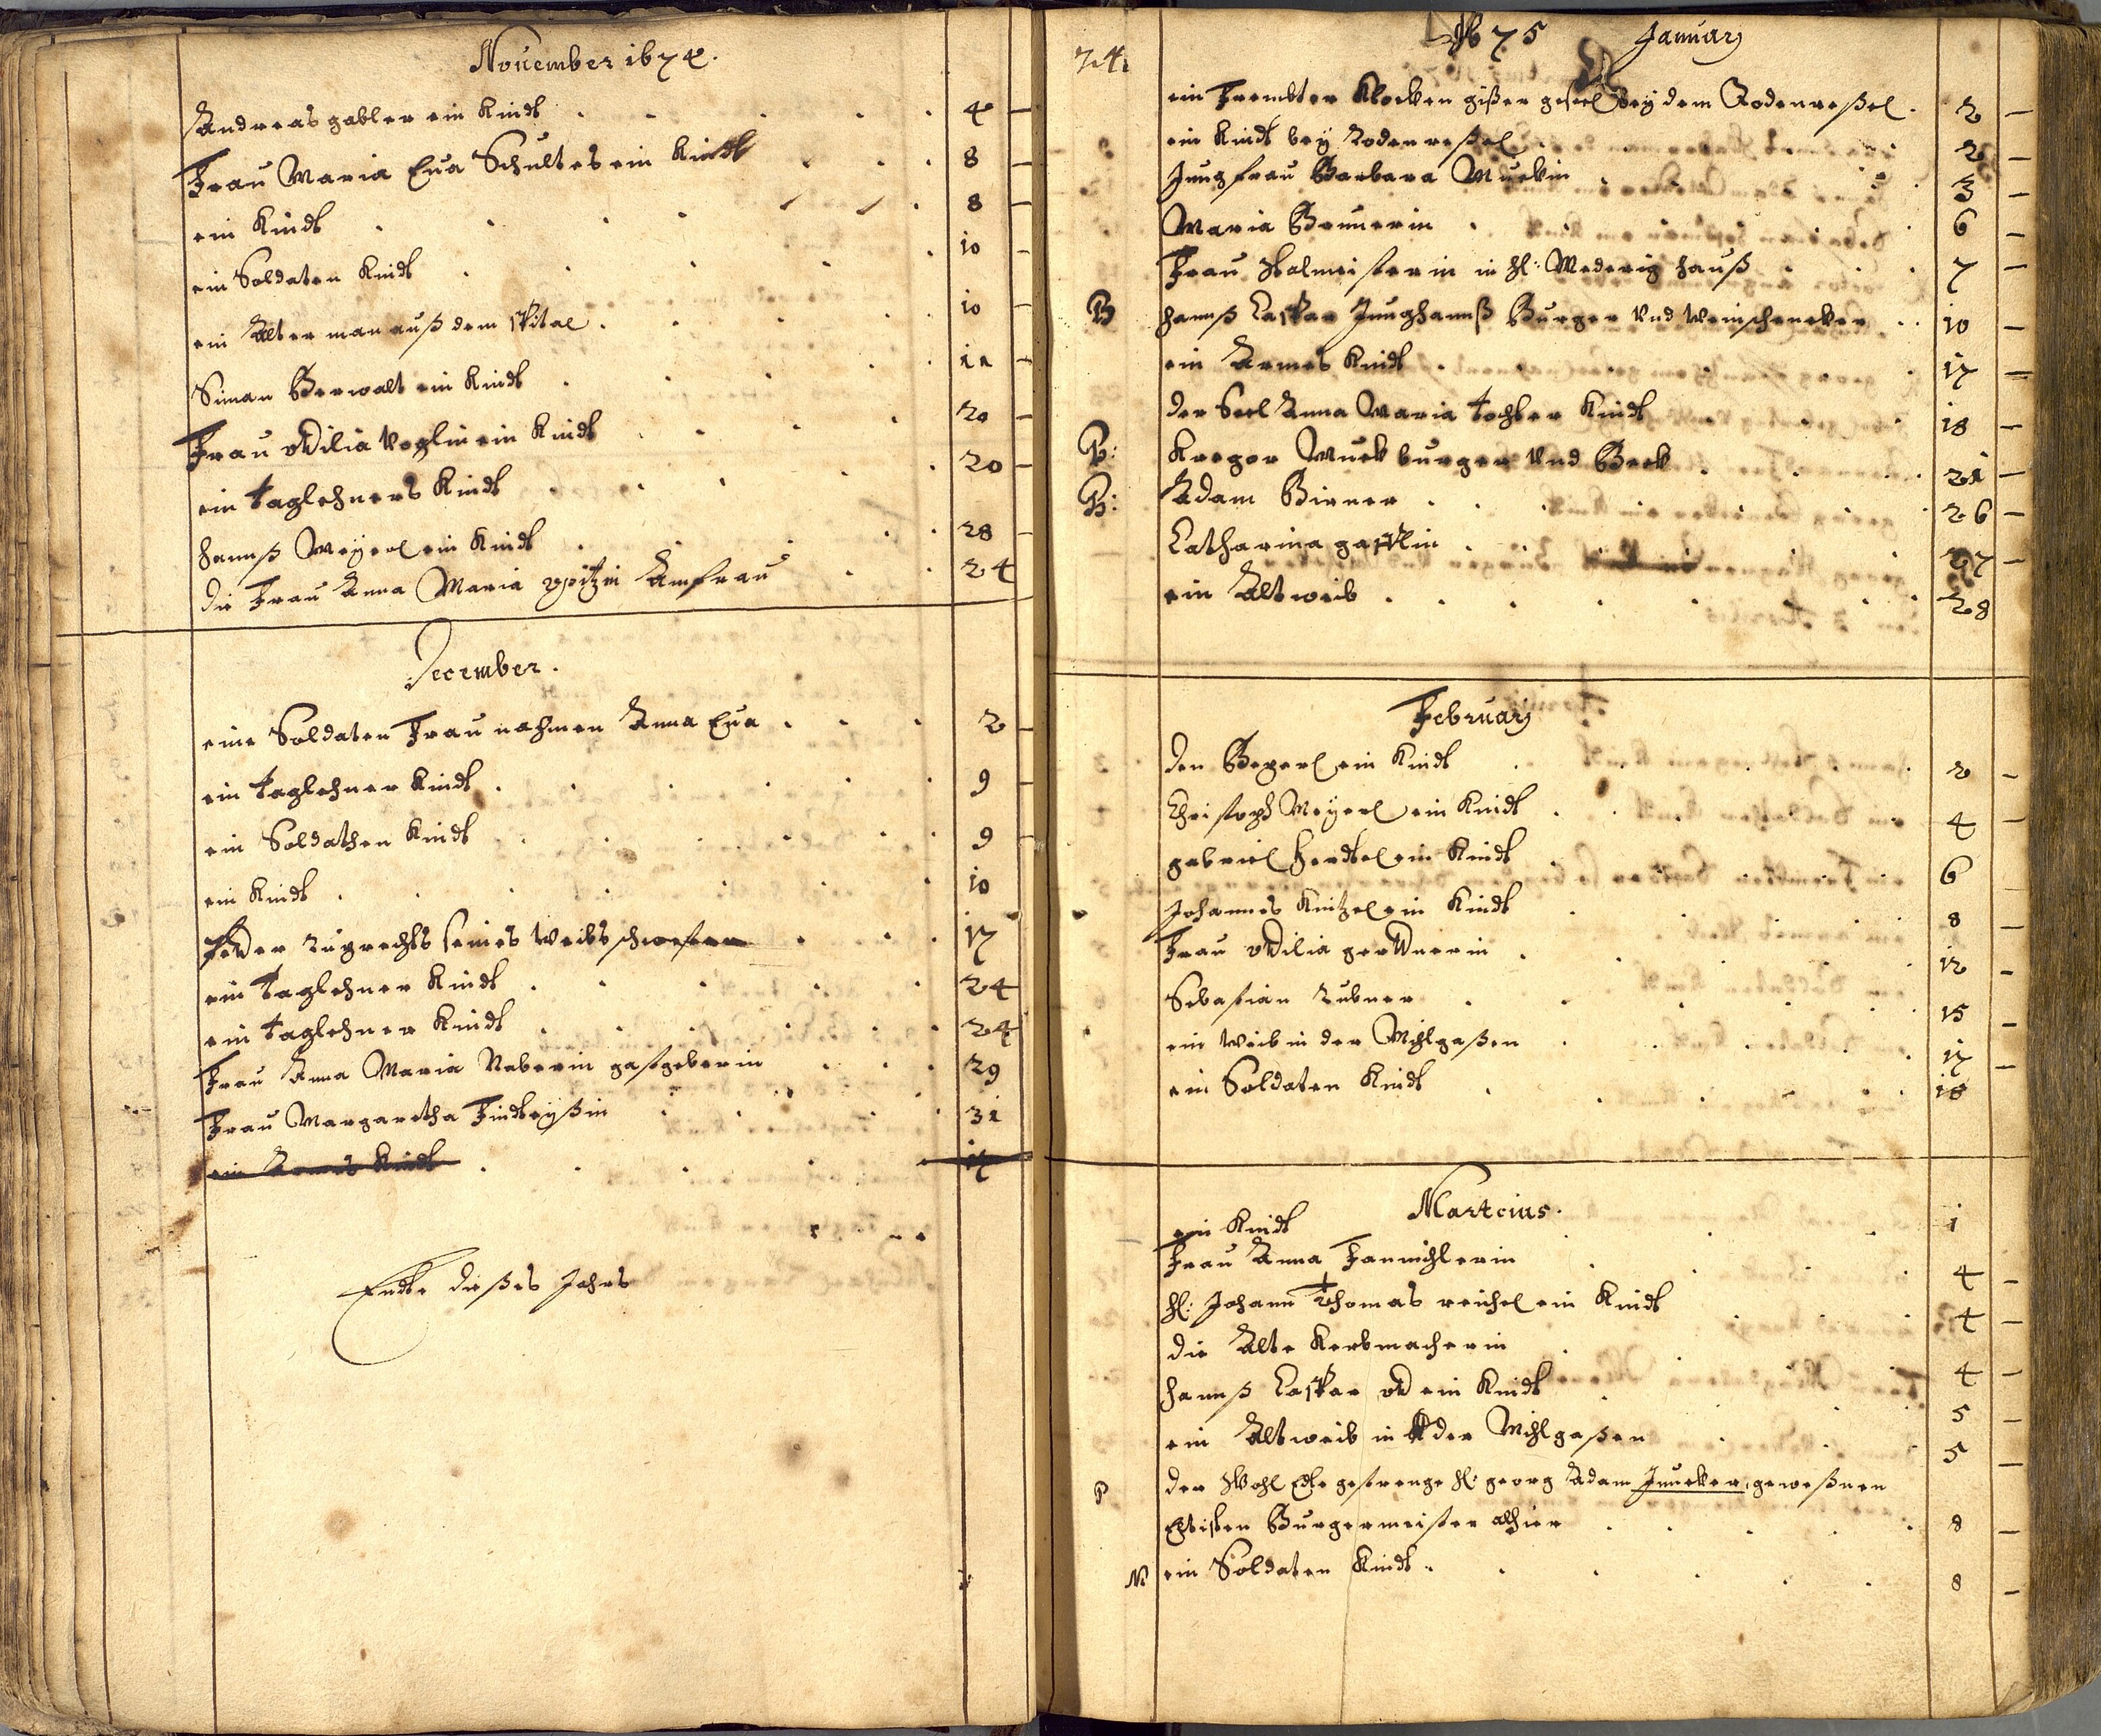 November 1674.
Andreas gabler ein Kindt . . . . 4 —
Frau Maria Eua Schultes ein Kindt . . . 8 —
ein Kindt . . . . 8 —
ein Soldaten Kindt . . . . 10 —
ein Alter man auß dem spital . . . . 10 —
Siman Berwalt ein Kindt . . . . 11 —
Frau Odilia Voglin ein Kindt . . . . 20 —
ein Taglehners Kindt . . . . 20 —
Hannß Meyerl ein Kindt . . . . 28 —
die Frau Anna Maria Amfrau . . 24
December.
eine Soldaten Frau nahmen Anna Eua . . . 2 —
ein Taglehner Kindt . . . . 9 —
ein Soldathen Kindt . . . . 9 —
ein Kindt . . . . 10
Peder Rugrechts seines Weibs schwester . . . 17
ein Taglehner Kindt . . . . 24
ein Taglehner Kindt . . . . 24
Frau Anna Maria Naberin gastgeberin . . . 29
Frau Margaretha Findeyßin . . . . 31
ein Armes Kindt . . . . 17
Endte dießes Jahrs
74.
1675 Januarj
ein Frembter Klocken gißer gesell bey dem Rodenreßel . 2 —
ein Kindt bey Rodenreßel . . . 2 —
Jungfrau Barbara Muckin . . . 3 —
Maria Brunerin . . . . 6 —
Frau in H: Mederig Hauß . . . 7 —
B Hannß Caspar Junghannß Burger Vnd Weinschencker . . 10 —
ein Armes Kindt . . . . 17 —
der Seel Anna Maria Tochter Kindt . . . 18 —
B: Kregor Muck burger Vnd Beck . . . 21 —
B: Adam Birner . . . . 26 —
Catharina gastlin . . . . 27 —
ein Alt weib . . . . 28
Februarj
den Beperl ein Kindt . . . . 2 —
Christoph Meyerl ein Kindt . . . . 4 —
gabriel Herdtel ein Kindt . . . 6 —
Johannes Knitzel ein Kindt . . . . 8 —
Frau Odilia gerdnerin . . . . 12 —
Sebastian Rubner . . . . 15 —
ein Weib in der Mihlgaßen . . . . 17 —
ein Soldaten Kindt . . . . 18
Martcius.
ein Kindt . . . 1
Frau Anna Fannichlerin . . . . 4 —
H: Johann Thomas reichel ein Kindt . . . 4 —
die Alte Korbmacherin . . . . 4 —
Hannß Caspar Od ein Kindt . . . 5 —
ein Alt weib in der Mihlgaßen . . . 5 —
P der Wohl Edle gestrenge H: georg Adam Juncker, geweßnen
Eltisten Burgermeister alhier . . . . 8 —
N ein Soldaten Kindt . . . . 8 —